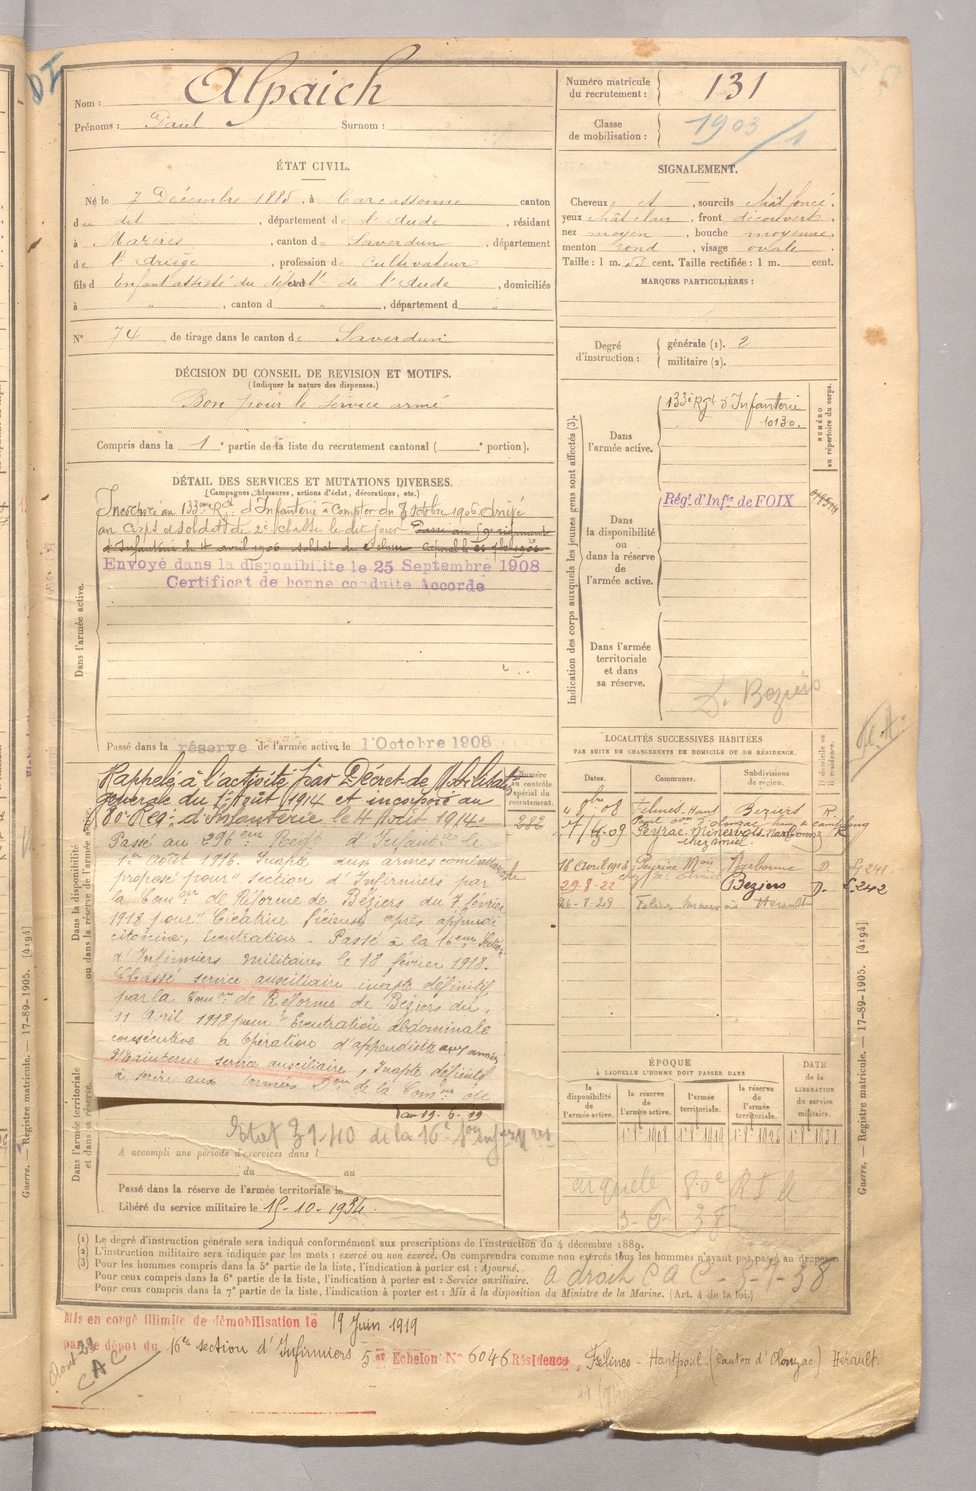 Nom : Alpaich
Prénoms : Paul Surnom :
Numéro matricule du recrutement : 131
Classe de mobilisation : 1903/1
ÉTAT CIVIL.
Né le 7 Décembre 1885, à Carcassonne canton
du dit, département de l'Aude, résidant
à Mazères, canton de Saverdun, département
de l'Ariège, profession de Cultivateur
fils d Enfant assisté du départt de l'Aude, domiciliés
à " , canton d " , département d "
N° 74 de tirage dans le canton de Saverdun
DÉCISION DU CONSEIL DE REVISION ET MOTIFS.
(Indiquer la nature des dispenses.)
Bon pour le service armé
Compris dans la 1e partie de la liste du recrutement cantonal ( e portion).
SIGNALEMENT.
Cheveux et, sourcils chât foncé,
yeux chât clair, front découvert,
nez moyen, bouche moyenne,
menton rond, visage ovale.
Taille : 1 m. cent. Taille rectifiée : 1 m. cent.
MARQUES PARTICULIÈRES :
Degré d'instruction : générale (1). 2
militaire (2).
DÉTAIL DES SERVICES ET MUTATIONS DIVERSES.
(Campagnes, blessures, actions d'éclat, décorations, etc.)
Dans l'armée active.
Incorporé au 133ème Rgt d'Infanterie à Compter du 8 Octobre 1906. Arrivé
au Corps et soldat de 2e classe le dit jour. Passé au régiment
d'Infanterie le 4 avril 1906 soldat de 2e classe
Envoyé dans la disponibilité le 25 Septembre 1908
Certificat de bonne conduite Accordé
Passé dans la réserve de l'armée active le 1 Octobre 1908
Indication des corps auxquels les jeunes gens sont affectés (3).
NUMÉRO au répertoire du corps.
Dans l'armée active.
133e Rgt d'Infanterie
10130.
Dans la disponibilité ou dans la réserve de l'armée active.
Régt d'Infie de FOIX
Dans l'armée territoriale et dans sa réserve.
D. Beziers
Dans la disponibilité ou dans la réserve de l'armée active.
Rappelé à l'activité par Décret de Mobilisation
générale du 1er Août 1914 et incorporé au
80e Régt d'Infanterie le 4 Août 1914.
Passé au 296ème Régt d'Infanterie le
1er Août 1916. Inapte aux armes combattantes
proposé pour Section d'Infirmiers par
la Comon de Réforme de Béziers du 7 février
1918 pour "Cicatrice vicieuse après appendi
citomie, éventration. Passé à la 16ème Section
d'Infirmiers militaires le 18 février 1918.
Classé service auxiliaire inapte définitif
par la Comon de Réforme de Béziers du
11 Avril 1918 pour "Eventration abdominale
consécutive à Opération d'appendicite aux armées
Maintenu service auxiliaire, Inapte définitif
à servir aux armées Don de la Comon de
du 19-6-19
Numéro au contrôle spécial du recrutement.
282
Dans l'armée territoriale et dans sa réserve.
Etat 3140 de la 16e
A accompli une période d'exercices dans l
du au
Passé dans la réserve de l'armée territoriale le
Libéré du service militaire le 15-10-1934
LOCALITÉS SUCCESSIVES HABITÉES
PAR SUITE DE CHANGEMENTS DE DOMICILE OU DE RÉSIDENCE.
Dates. Communes. Subdivisions de région. D domicile ou R résidence.
4 9bre 08 Félines Haut Beziers R.
09 Peyrac Minervois Narbonne R
18 Avril 1913 Peyriac Mois Narbonne D. L 241
29-8-22 Beziers D. L 242
26-8-29 Félines Hérault
ÉPOQUE
À LAQUELLE L'HOMME DOIT PASSER DANS
la disponibilité de l'armée active. la réserve de l'armée active. l'armée territoriale. la réserve de l'armée territoriale.
DATE de la LIBÉRATION du service militaire.
1er 8bre 1908 1er 8bre 1919 1er 8bre 1925 1er 8bre 1931
enquete 80e R I
3-6 38
(1) Le degré d'instruction générale sera indiqué conformément aux prescriptions de l'instruction du 4 décembre 1889.
(2) L'instruction militaire sera indiquée par les mots : exercé ou non exercé. On comprendra comme non exercés tous les hommes n'ayant pas passé au drapeau
(3) Pour les hommes compris dans la 5e partie de la liste, l'indication à porter est : Ajourné.
Pour ceux compris dans la 6e partie de la liste, l'indication à porter est : Service auxiliaire.
Pour ceux compris dans la 7e partie de la liste, l'indication à porter est : Mis à la disposition du Ministre de la Marine. (Art. 4 de la loi.)
a droit C A C - 5-7-38
Mis en congé illimité de démobilisation le 19 Juin 1919
par le dépôt du 16e section d'Infirmiers 5e Echelon N° 6046 Résidence, Félines-Hautpoul (Canton d'Olonzac) Hérault.
CAC
Guerre. — Registre matricule. — 17-89-1905. [4194]
Guerre. — Registre matricule. — 17-89-1905. [4194]